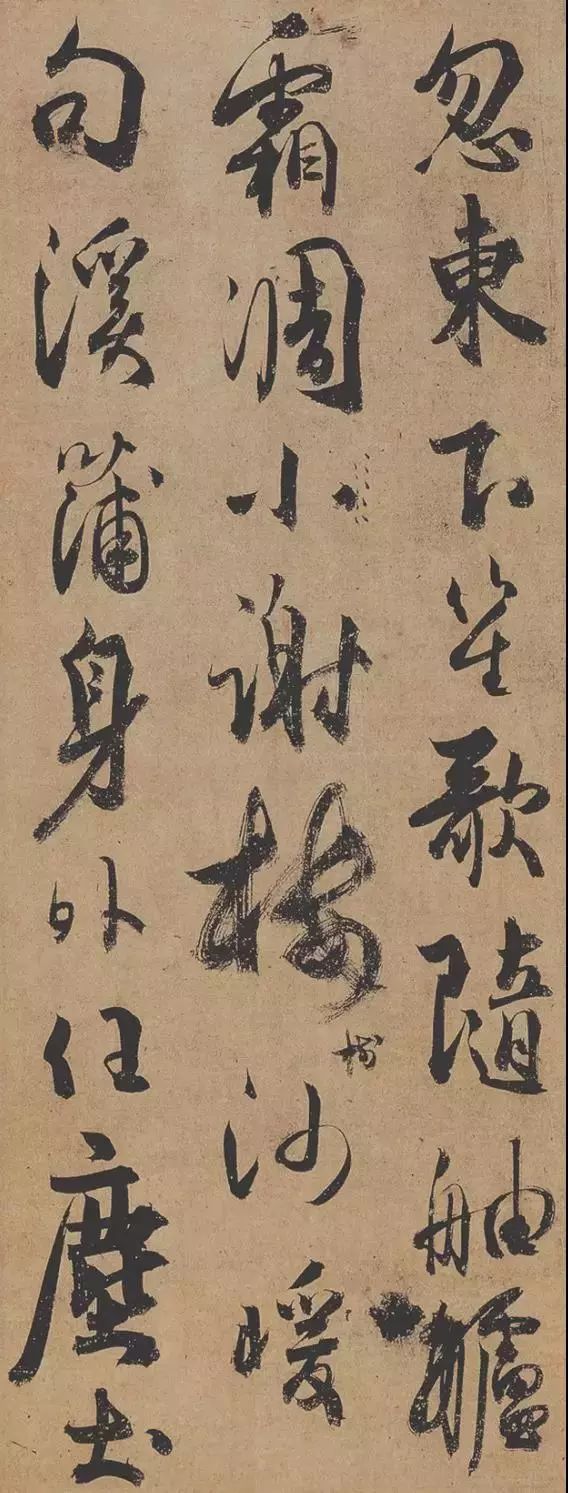 忽東下笙歌隨舳艫
霜凋小謝樓樹沙暖
句溪蒲身外任塵土